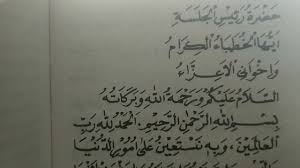 حَضْرَةُ رَئِيْسِ الْجَلْسَةِ
اَيُّهَا الْخُطَبَاءُ الْكِرَامُ
وَاِخْوَانِى الْاَعِزَّاءُ
اَلسَّلَامُ عَلَيْكُمْ وَرَحْمَةُ اللهِ وَبَرَكَاتُهُ
بِسْمِ اللهِ الرَّحْمٰنِ الرَّحِيْمِ. اَلْحَمْدُ لِلّٰهِ رَبِّ
الْعَالَمِيْنَ، وَبِهِ نَسْتَعِيْنُ عَلَى اُمُوْرِ الدُّنْيَا